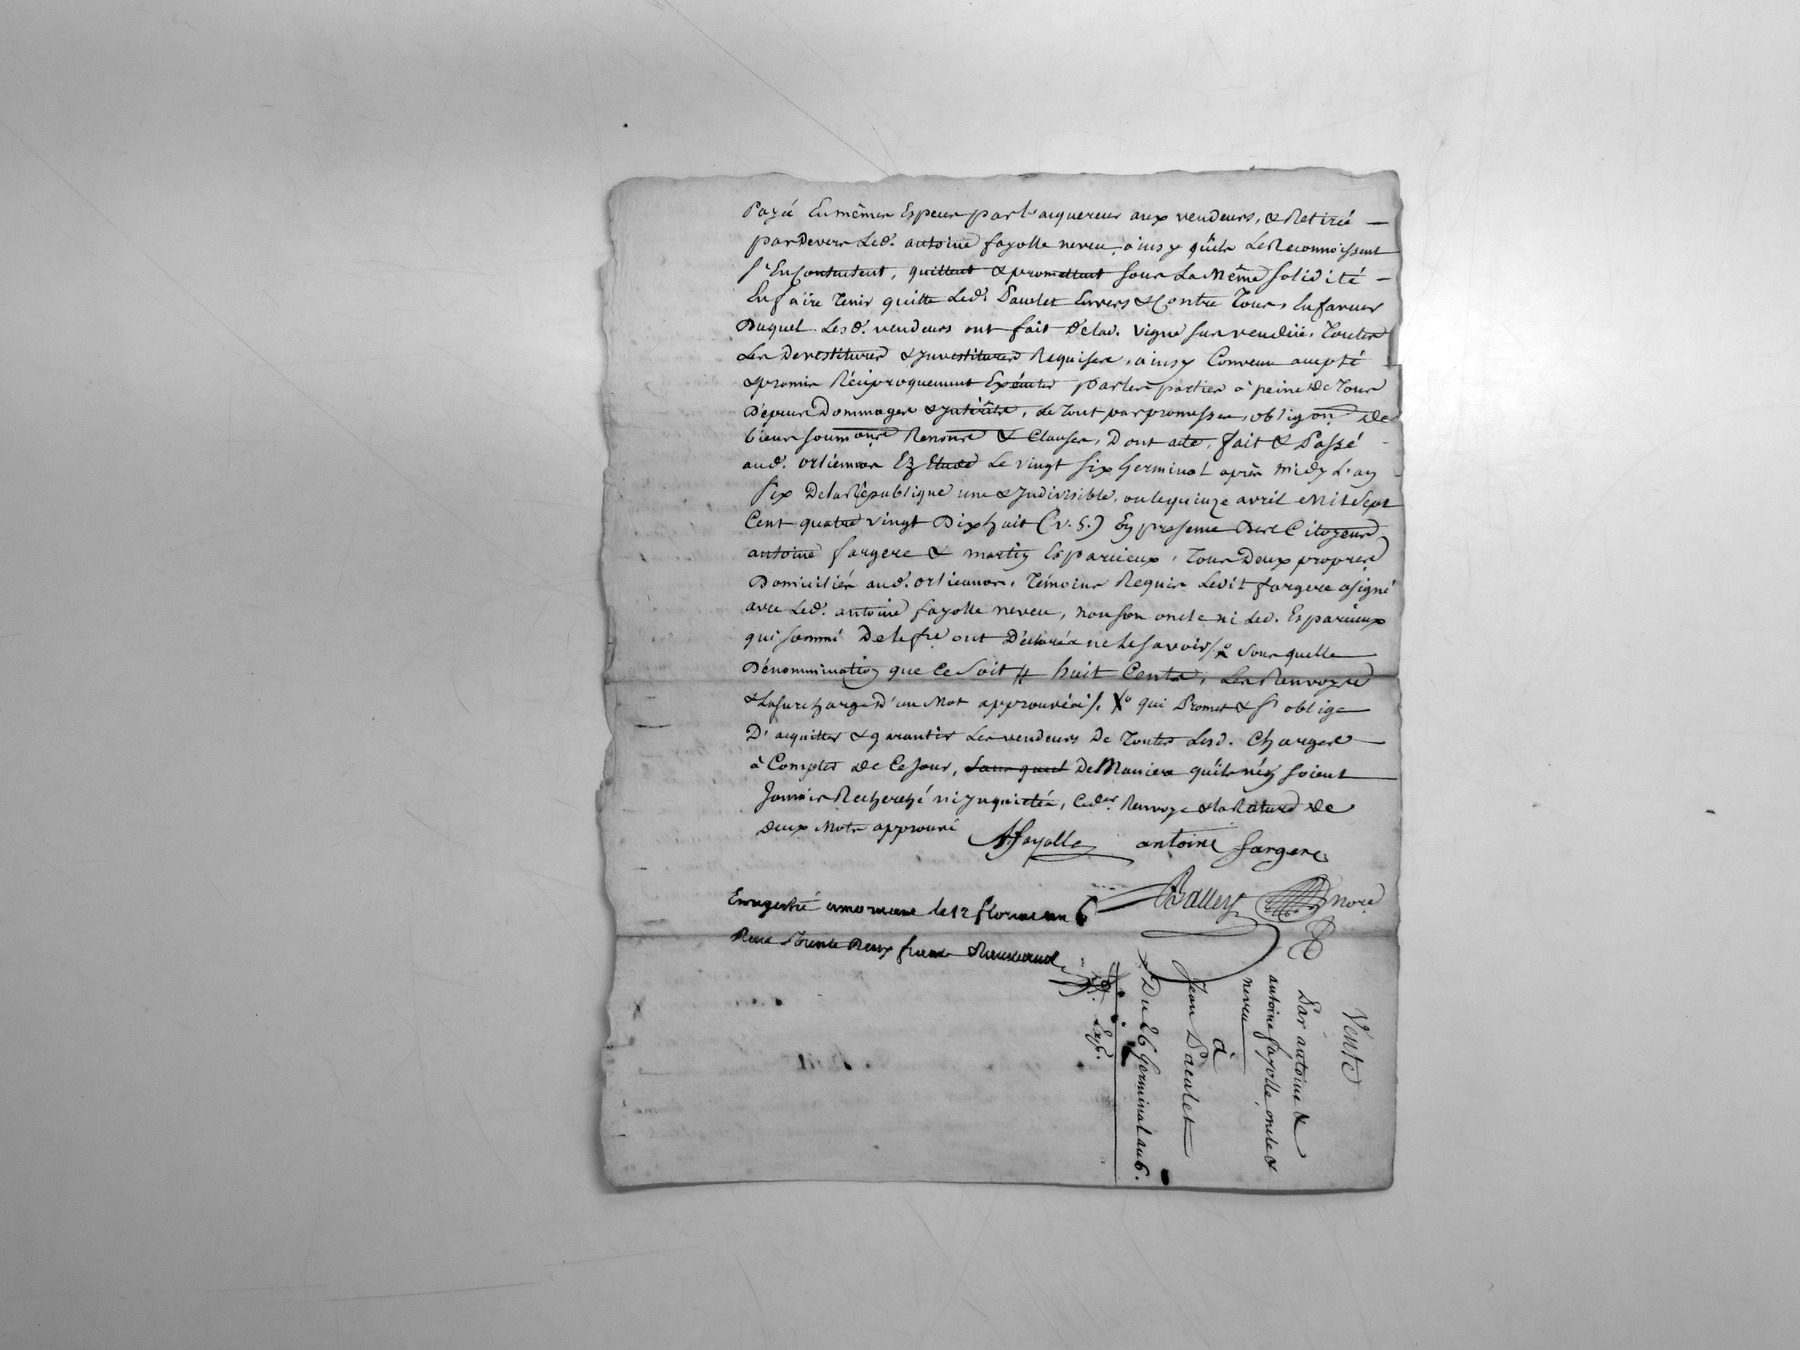 Payé En mêmes Especes par l'aquereur aux vendeurs, & Retiré
par Devers Led. antoine fayolle neveu, ainsy qu'ils Le Reconnoissent
s'En Contentent, quittent & promettent sous La Même solidité
En faire Tenir quitte Led. Paulet Envers & Contre Tous, En faveur
Duquel Lesd. vendeurs ont fait De lad. vigne sus vendüe, Toutes
Les Devestitures & Investitures Requises, ainsy Convenu accepté
& promis Réciproquement Exécuter par les parties à peine de Tous
Dépens Dommages & Intérêts, de Tout par promesses, obligaon. De
biens soumons Renonce & Clauses, Dont acte, fait & Passé
aud. orliennas Ez Etude Le vingt six Germinal après midy L'an
six De la République une & Indivisible, ou le quinze avril Mil Sept
Cent quatre vingt Dix huit (v. S.) En presence Des Citoyens
antoine fargere & martin Esparcieux, Tous Deux propres
Domiciliés aud. orliennas, Témoins Requis Ledit fargere a signé
avec Led. antoine fayolle neveu, non son oncle ni Led. Esparcieux
qui sommé De le fre ont Déclarés ne Le savoir /. Sous quelle
Dénomination que Ce Soit // huit Cents, Les Renvoys
& La surcharge D'un Mot approuvées /. Xo qui Promet & s'oblige
D'aquitter & garantir Les vendeurs De Toutes Lesd. Charges
à Compter de Ce Jour, De Maniere qu'ils n'en soient
Jamais Recherché ni Inquiétés, Ced. Renvoye & la Rature De
Deux Mots approuvé
A fayolle antoine fargere
Balley nore
Enregistré a mornant le 12 floreal an 6
Reçu Trente Deux francs
Vente
Par antoine &
antoine fayolle oncle &
neveu
à
Jean Paulet
Du 26 Germinal an 6.
Exp.